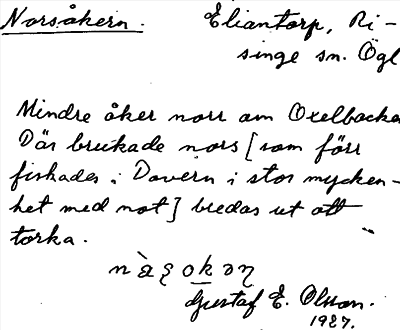 Norsåkern. Eliantorp, Ri-
singe sn. Ögl
Mindre åker norr om Oxelbacka
Där brukade nors [som förr
fiskades i Dovern i stor mycken-
het med not] bredas ut att
torka.
Gustaf E. Olsson.
1927.